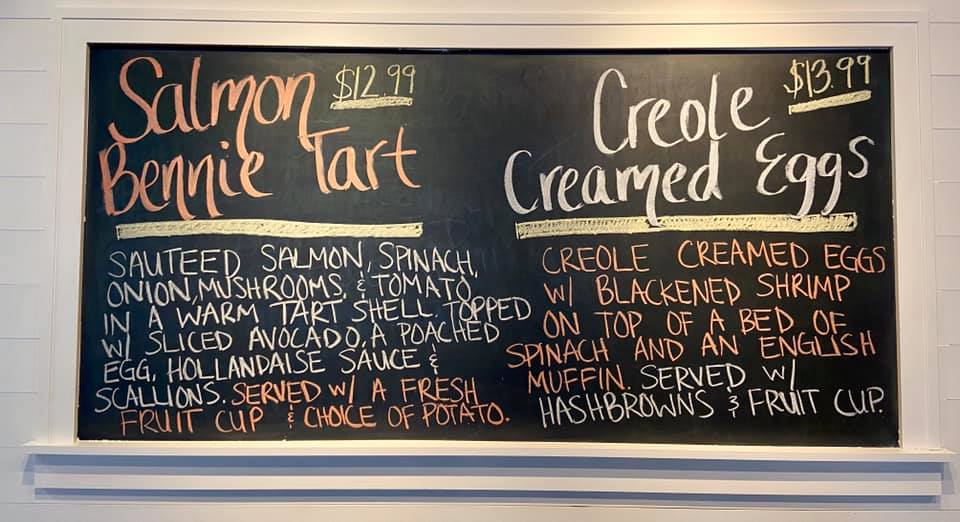 Salmon $12.99
Bennie Tart
SAUTEED SALMON, SPINACH,
ONION, MUSHROOMS, & TOMATO
IN A WARM TART SHELL. TOPPED
W/ SLICED AVOCADO, A POACHED
EGG, HOLLANDAISE SAUCE &
SCALLIONS. SERVED W/ A FRESH
FRUIT CUP & CHOICE OF POTATO.
Creole $13.99
Creamed Eggs
CREOLE CREAMED EGGS
W/ BLACKENED SHRIMP
ON TOP OF A BED OF
SPINACH AND AN ENGLISH
MUFFIN. SERVED W/
HASHBROWNS & FRUIT CUP.